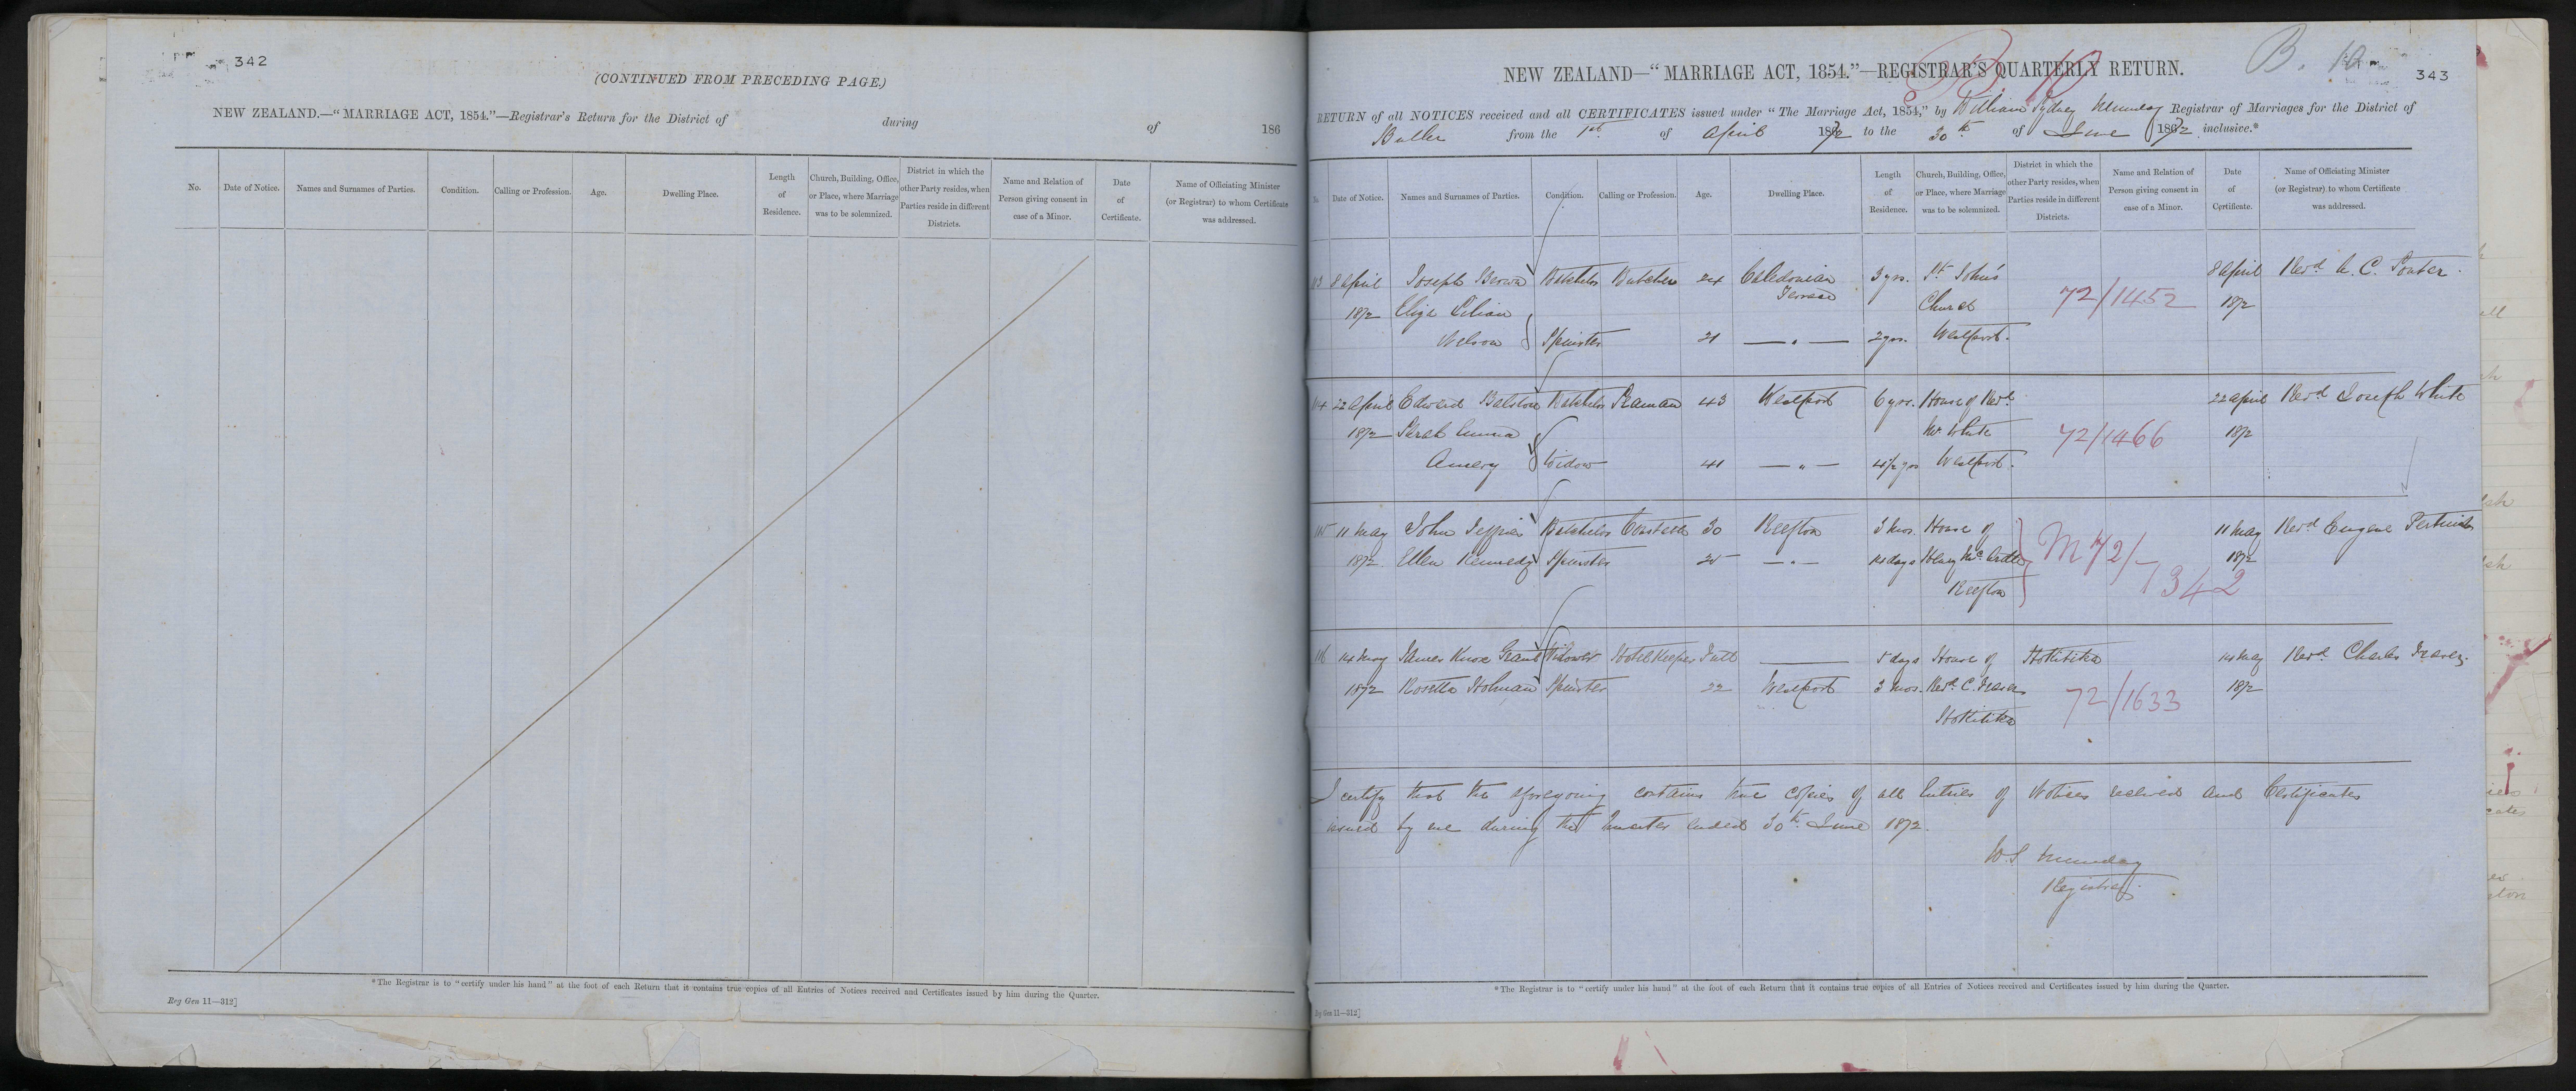 342
(CONTINUED FROM PRECEDING PAGE.)
NEW ZEALAND.—"MARRIAGE ACT, 1854."—Registrar's Return for the District of during of 186
No. Date of Notice. Names and Surnames of Parties. Condition. Calling or Profession. Age. Dwelling Place. Length of Residence. Church, Building, Office, or Place, where Marriage was to be solemnized. District in which the other Party resides, when Parties reside in different Districts. Name and Relation of Person giving consent in case of a Minor. Date of Certificate. Name of Officiating Minister (or Registrar) to whom Certificate was addressed.
*The Registrar is to "certify under his hand" at the foot of each Return that it contains true copies of all Entries of Notices received and Certificates issued by him during the Quarter.
Reg Gen 11—312]
B. 10
343
NEW ZEALAND—"MARRIAGE ACT, 1854."—REGISTRAR'S QUARTERLY RETURN.
RETURN of all NOTICES received and all CERTIFICATES issued under "The Marriage Act, 1854," by William Sydney Munday Registrar of Marriages for the District of
Buller from the 1st of April 1872 to the 30th of June 1872 inclusive.*
Date of Notice. Names and Surnames of Parties. Condition. Calling or Profession. Age. Dwelling Place. Length of Residence. Church, Building, Office, or Place, where Marriage was to be solemnized. District in which the other Party resides, when Parties reside in different Districts. Name and Relation of Person giving consent in case of a Minor. Date of Certificate. Name of Officiating Minister (or Registrar) to whom Certificate was addressed.
113 8 April Joseph Brown Batchelor Butcher 24 Caledonian Terrace 3 yrs. St John's 8 April Revd
1872 Eliza Lilian Church 72/1452 1872
Wilson Spinster 21 — " — 2 yrs. Westport.
114 22 April Edward Balston Batchelor Seaman 43 Westport 6 yrs. House of Revd 22 April Revd Joseph White
1872 Sarah Emma Mr White 72/1466 1872
Amery Widow 41 — " — 4 1/2 yrs Westport.
115 11 May John Jeffries Batchelor 30 Reefton 3 mos. House of 11 May Revd Eugene
1872 Ellen Kennedy Spinster 25 — " — 14 days Henry McArdle M72/1342 1872
Reefton
116 14 May James Knox Grant Widower Hotel Keeper Full —— 5 days House of Hokitika 14 May Revd Charles Fraser.
1872 Rosetta Holman Spinster 22 Westport 3 mos. Revd C. Fraser 72/1633 1872
Hokitika
I certify that the aforegoing contains true copies of all Entries of Notices received and Certificates
issued by me during the Quarter ended 30th June 1872.
W.S Munday
Registrar.
*The Registrar is to "certify under his hand" at the foot of each Return that it contains true copies of all Entries of Notices received and Certificates issued by him during the Quarter.
Reg Gen 11—312]